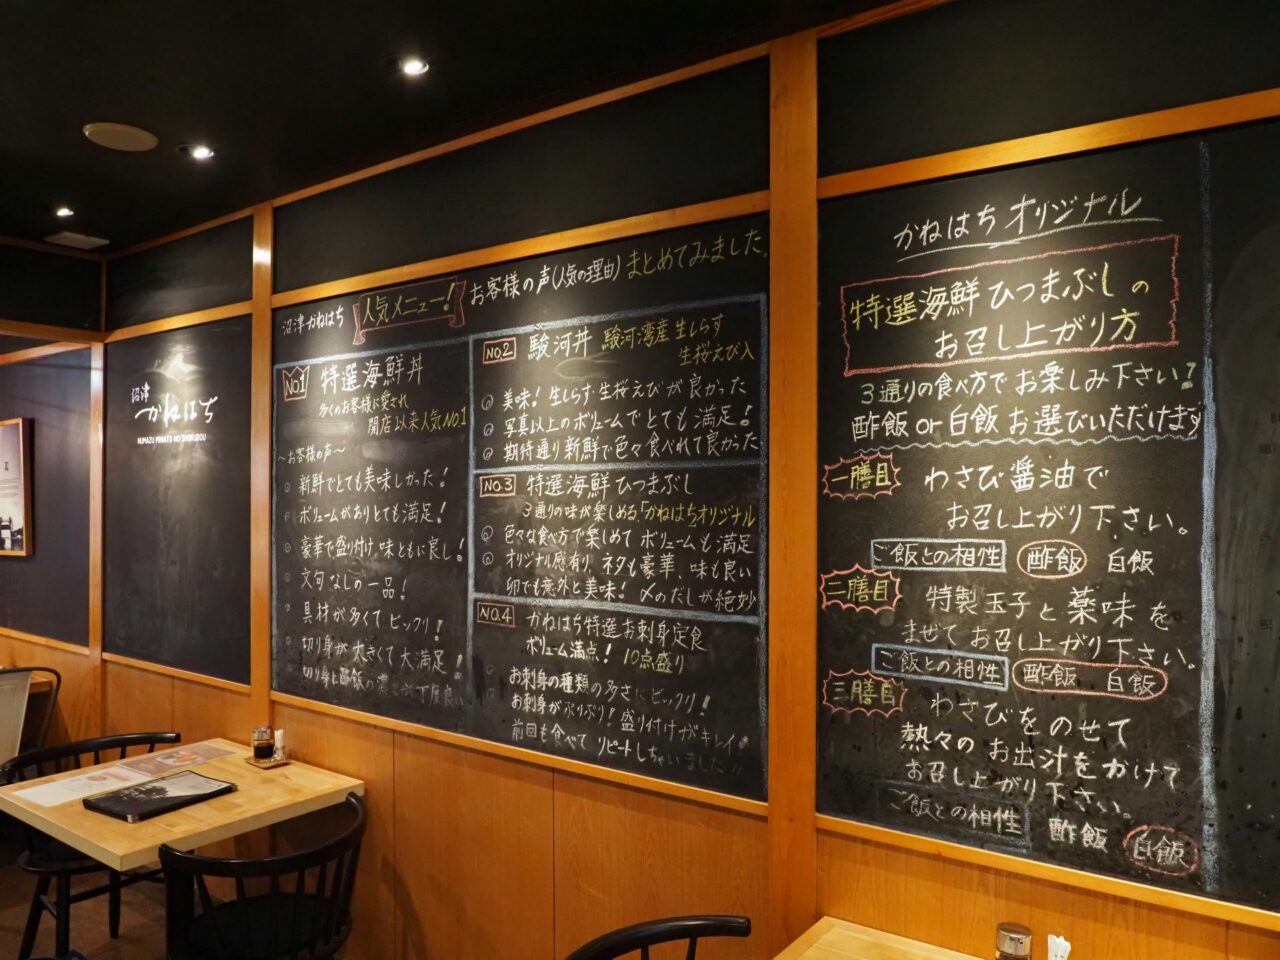 沼津
かねはち
NUMAZU MINATO NO SHOKUDOU
沼津かねはち 人気メニュー! お客様の声(人気の理由) まとめてみました。
NO.1 特選海鮮丼
多くのお客様に愛され
開店以来人気NO.1
～お客様の声～
新鮮でとても美味しかった!
ボリュームがありとても満足!
豪華で盛り付け、味ともに良し!
文句なしの一品!
具材が多くてビックリ!
切り身が大きくて大満足!
切り身と酢飯の濃さが丁度良い
NO.2 駿河丼 駿河湾産生しらす
生桜えび入
美味! 生しらす・生桜えびが良かった
写真以上のボリュームでとても満足!
期待通り新鮮で色々食べれて良かった
NO.3 特選海鮮ひつまぶし
3通りの味が楽しめる「かねはち」オリジナル
色々な食べ方で楽しめてボリュームも満足
オリジナル感有り、ネタも豪華、味も良い
卵でも意外と美味! 〆のだしが絶妙
NO.4 かねはち特選お刺身定食
ボリューム満点! 10点盛り
お刺身の種類の多さにビックリ!
お刺身がぷりぷり! 盛り付けがキレイ!
前回も食べてリピートしちゃいました
かねはちオリジナル
特選海鮮ひつまぶしの
お召し上がり方
3通りの食べ方でお楽しみ下さい!
酢飯 or 白飯 お選びいただけます
一膳目 わさび醤油で
お召し上がり下さい。
ご飯との相性 酢飯 白飯
二膳目 特製玉子と薬味を
まぜてお召し上がり下さい。
ご飯との相性 酢飯 白飯
三膳目 わさびをのせて
熱々のお出汁をかけて
お召し上がり下さい。
ご飯との相性 酢飯 白飯